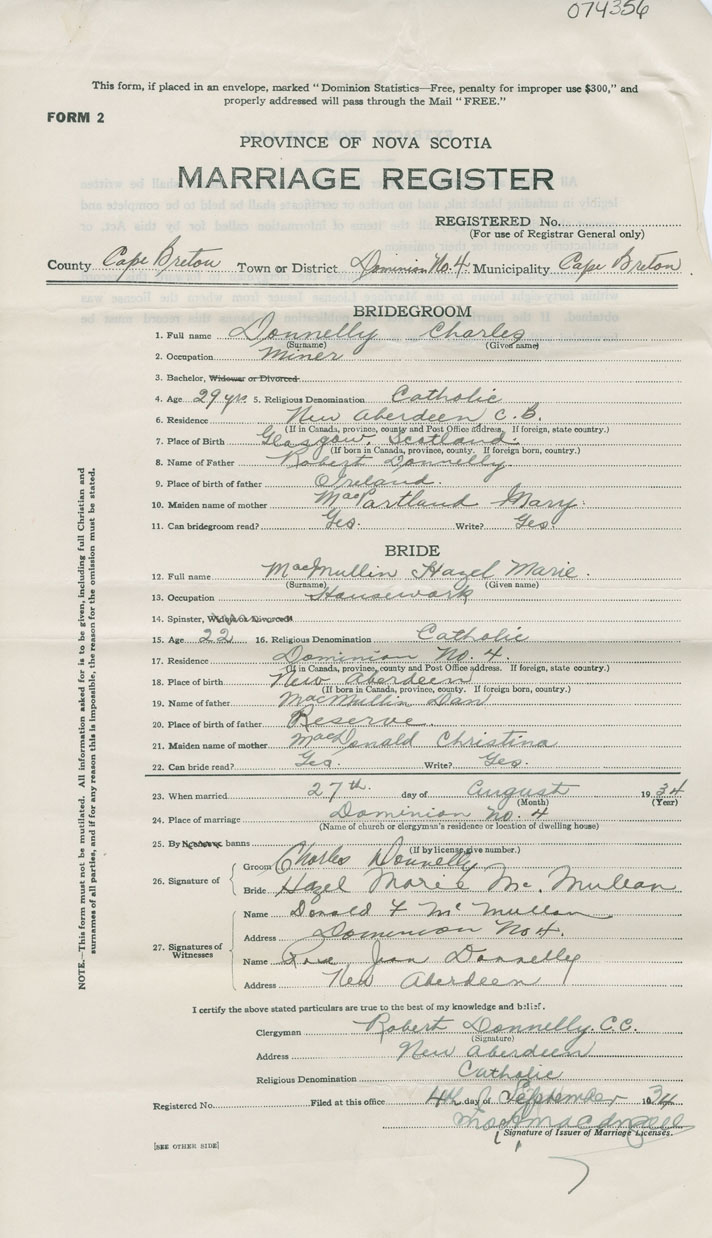 074356
This form, if placed in an envelope, marked "Dominion Statistics—Free, penalty for improper use $300," and
properly addressed will pass through the Mail "FREE."
FORM 2
PROVINCE OF NOVA SCOTIA
MARRIAGE REGISTER
REGISTERED No.
(For use of Registrar General only)
County Cape Breton Town or District Dominion No. 4. Municipality Cape Breton
BRIDEGROOM
1. Full name Donnelly Charles
(Surname) (Given name)
2. Occupation Miner
3. Bachelor, Widower or Divorced
4. Age 29 yrs 5. Religious Denomination Catholic
6. Residence New Aberdeen C.B.
(If in Canada, province, county and Post Office address. If foreign, state country.)
7. Place of Birth Glasgow, Scotland.
(If born in Canada, province, county. If foreign born, country.)
8. Name of Father Robert Donnelly
9. Place of birth of father Ireland.
10. Maiden name of mother MacPartland Mary.
11. Can bridegroom read? Yes. Write? Yes.
BRIDE
12. Full name MacMullin Hazel Marie.
(Surname) (Given name)
13. Occupation Housework
14. Spinster, Widow or Divorced
15. Age 22 16. Religious Denomination Catholic
17. Residence Dominion No. 4.
(If in Canada, province, county and Post Office address. If foreign, state country.)
18. Place of birth New Aberdeen
(If born in Canada, province, county. If foreign born, country.)
19. Name of father MacMullin Dan
20. Place of birth of father Reserve
21. Maiden name of mother MacDonald Christina
22. Can bride read? Yes. Write? Yes.
23. When married 27th. day of August 1934
(Month) (Year)
24. Place of marriage Dominion No. 4
(Name of church or clergyman's residence or location of dwelling house)
25. By license banns
(If by license, give number.)
26. Signature of Groom Charles Donnelly
Bride Hazel Marie Mc. Mullan
27. Signatures of Witnesses
Name Donald F Mc Mullan
Address Dominion No 4.
Name Rose Jean Donnelly
Address New Aberdeen
I certify the above stated particulars are true to the best of my knowledge and belief.
Clergyman Robert Donnelly. C.C.
(Signature)
Address New Aberdeen
Religious Denomination Catholic
Registered No. Filed at this office 4th day of September 1934
Signature of Issuer of Marriage Licenses.
[SEE OTHER SIDE]
NOTE.—This form must not be mutilated. All information asked for is to be given, including full Christian and
surnames of all parties, and if for any reason this is impossible, the reason for the omission must be stated.